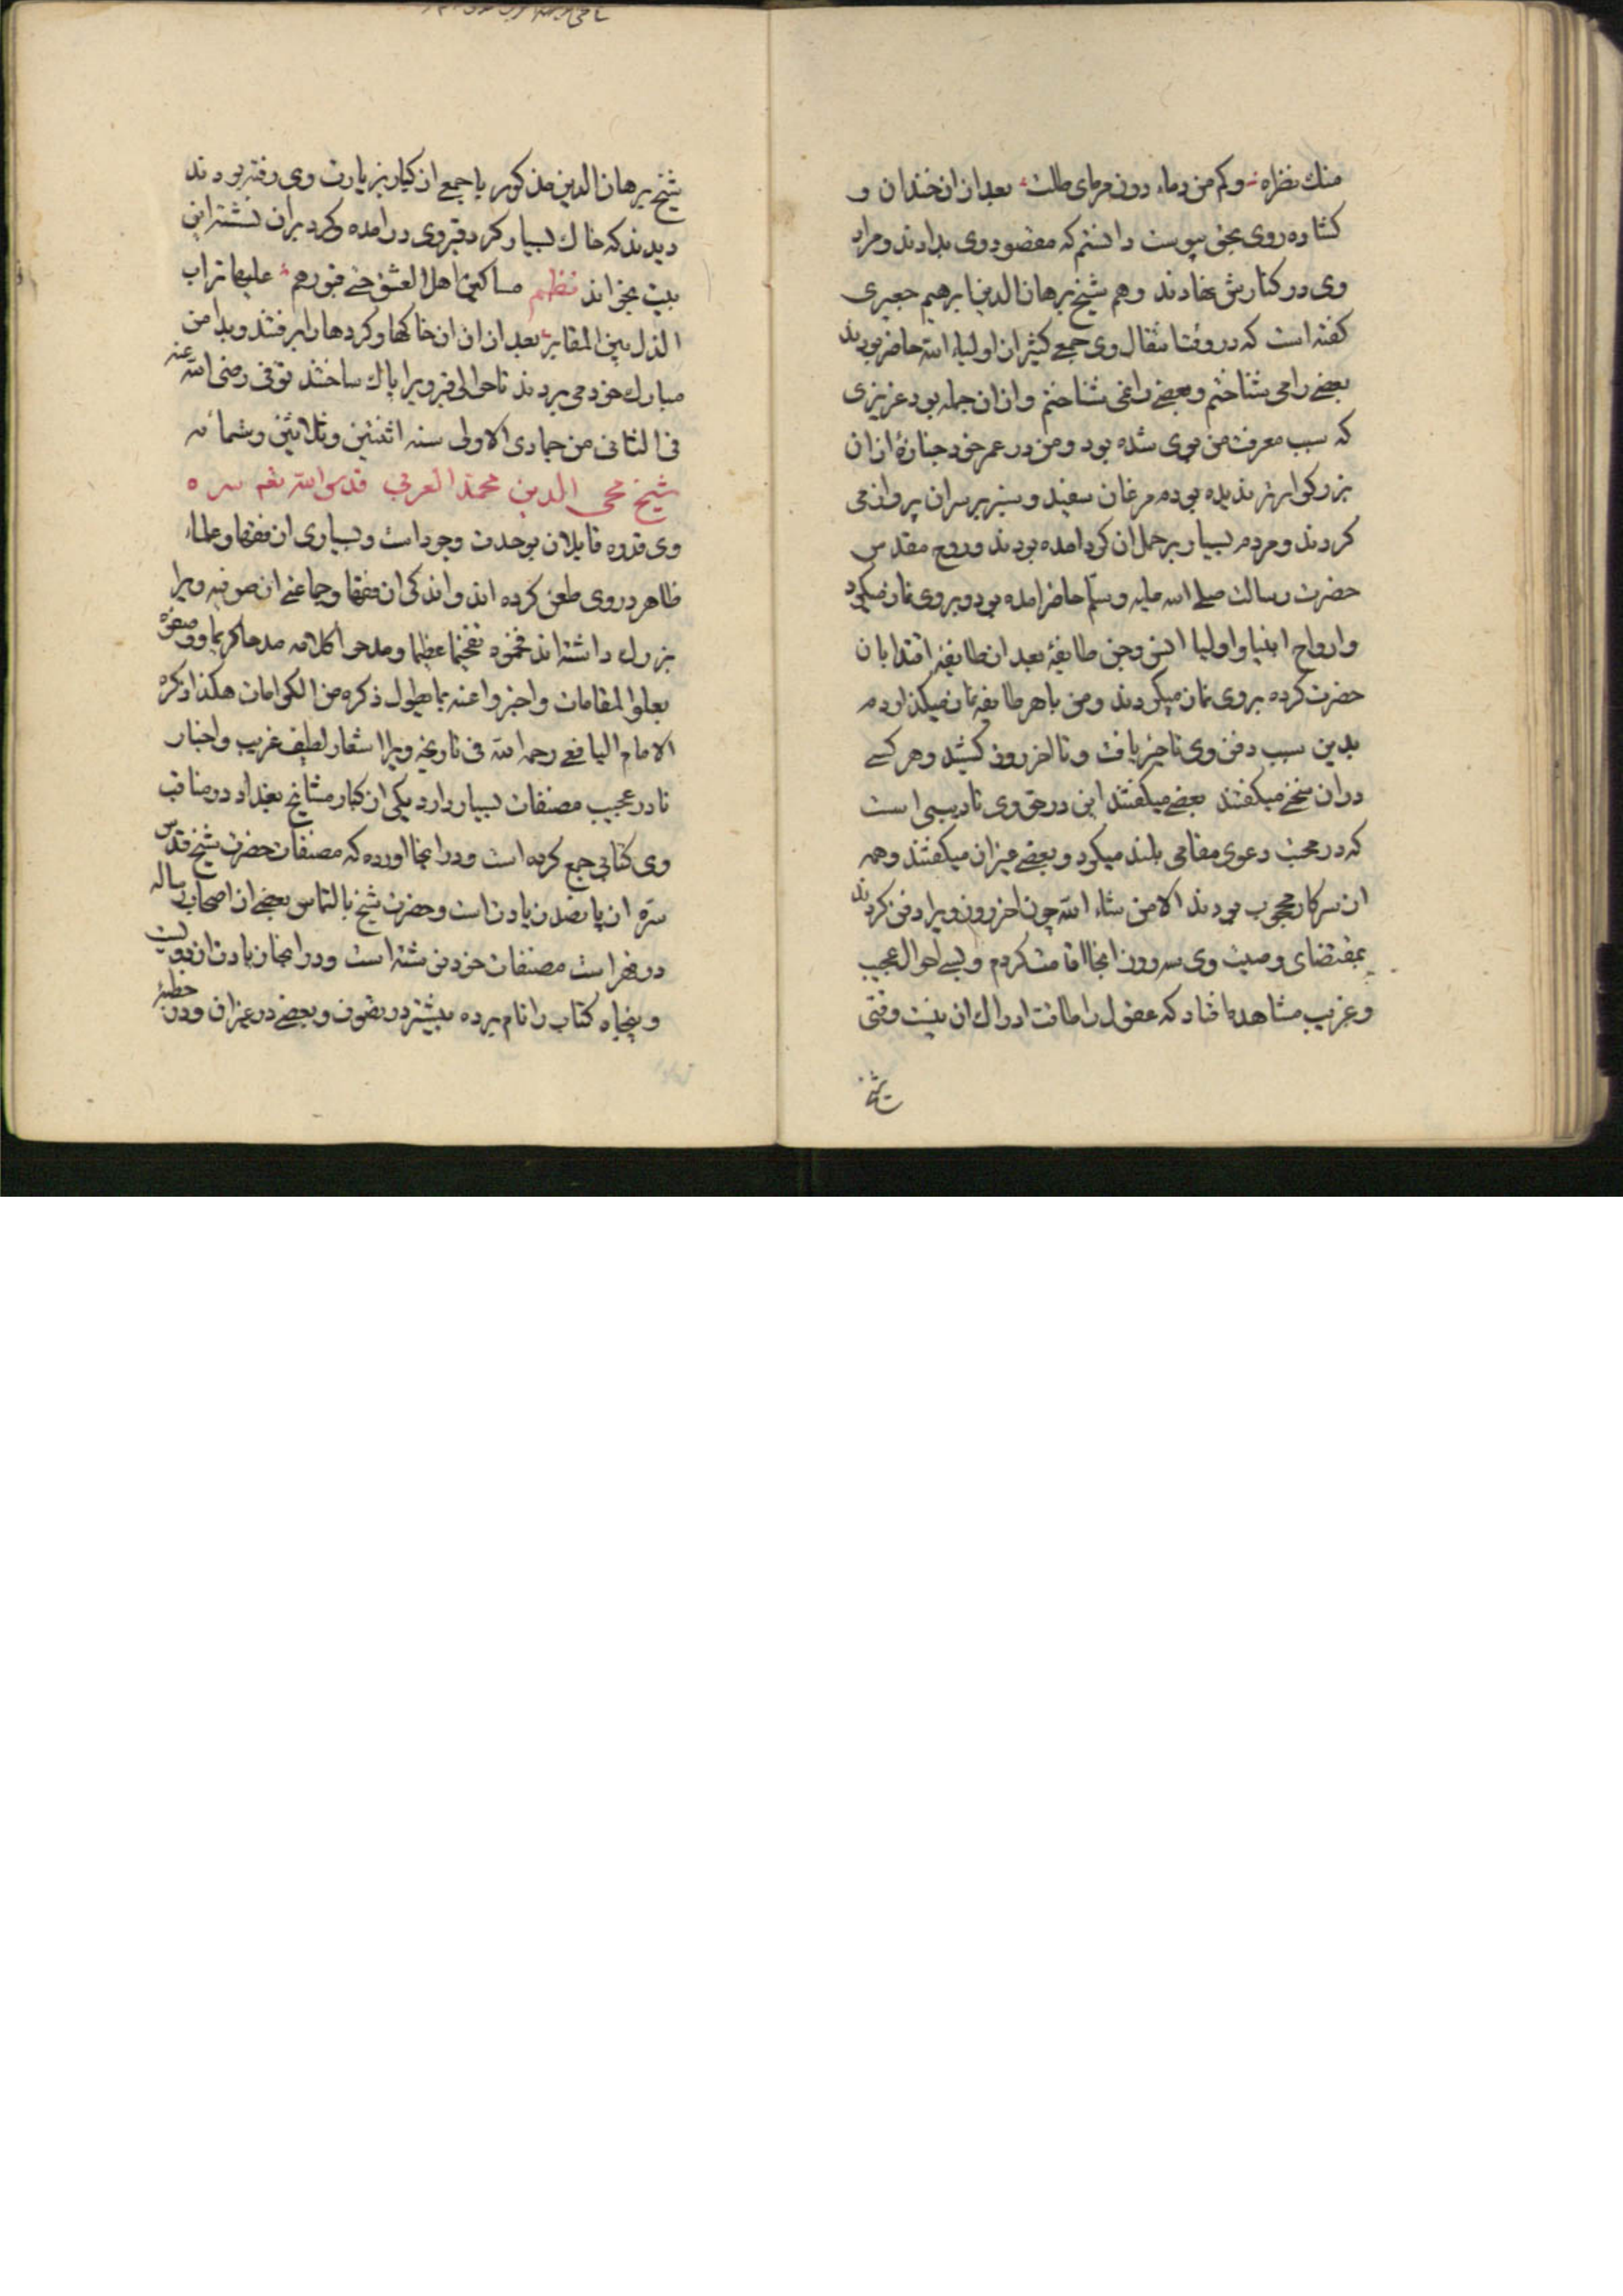 منك نظراه وكم من دماء دون مرماى طلت بعد از ان خندان و
كشاده روى بحق پيوست دانستم كه مقصود وى بدادند و مراد
وى در كنارش نهادند وهم شيخ برهان الدين ابرهيم جعبرى
كفته است كه در وقت انتقال وى جمعى كثير از اولياء الله حاضر بودند
بعضى را مى شناختم و بعضى را نمى شناختم و از ان جمله بود عزيزى
كه سبب معرفت من بوى شده بود و من در عمر خود جنازهٔ از ان
بزركوارتر نديده بودم مرغان سفيد و سبز بر سر ان پرواز مى
كردند و مردم بسيار بر حمل ان كرد امده بودند و روح مقدس
حضرت رسالت صلى الله عليه وسلم حاضر امده بود و بر وى نماز ميكرد
و ارواح انبيا و اوليا انس و جن طايفهٔ بعد از طايفه اقتدا بان
حضرت كرده بر وى نماز ميكردند و من با هر طايفه نماز ميكذاردم
بدين سبب دفن وى تاخير يافت و تا اخر روز كشيد و هر كسى
در ان سخنى ميكفتند بعضى ميكفتند اين در حق وى تاديبى است
كه در محبت دعوى مقامى بلند ميكرد و بعضى غير ان ميكفتند و همه
از سر كار محجوب بودند الا من شاء الله چون اخر روز ويرا دفن كردند
بمقتضاى وصيت وى سه روز انجا اقامت كردم و بسى احوال عجيب
و غريب مشاهده افتاد كه عقول را طاقت ادراك ان نيست وقتى
شيخ برهان الدين مذكور با جمعى از كبار بزيارت وى رفته بودند
ديدند كه خاك بسيار كرد قبر وى در امده و كرد بران نشسته اين
بيت بخواند نظم مساكين اهل العشق حتى قبورهم عليها تراب
الذل بين المقابر بعد از ان ان خاكها و كردها را برفتند و بدامن
مبارك خود مى بردند تا حوالى قبر ويرا پاك ساختند توفى رضى الله عنه
فى الثانى من جمادى الاولى سنه اثنتين وثلاثين وستمائه
شيخ محى الدين محمد العربى قدس الله تعه سره
وى قدوه قايلان بوحدت وجود است و بسيارى از فقها و علماء
ظاهر در وى طعن كرده اند و اندكى از فقها و جماعتى از صوفيه ويرا
بزرك داشته اند فخموه تفخيما عظيما ومدحوا كلامه مدحا كريما ووصفوه
بعلو المقامات واخبروا عنه بما يطول ذكره من الكرامات هكذا ذكره
الامام اليافعى رحمه الله فى تاريخه ويرا اشعار لطيف غريب و اخبار
نادر عجيب مصنفات بسيار دارد يكى از كبار مشايخ بغداد در مناقب
وى كتابى جمع كرده است و در انجا اورده كه مصنفات حضرت شيخ قدس
سره از پانصد زيادت است و حضرت شيخ بالتماس بعضى از اصحاب رساله
در فهراست مصنفات خود نوشته است و در انجا زيادت از دويست
و پنجاه كتاب را نام برده بيشتر در تصوف و بعضى در غير ان و در خطبهٔ